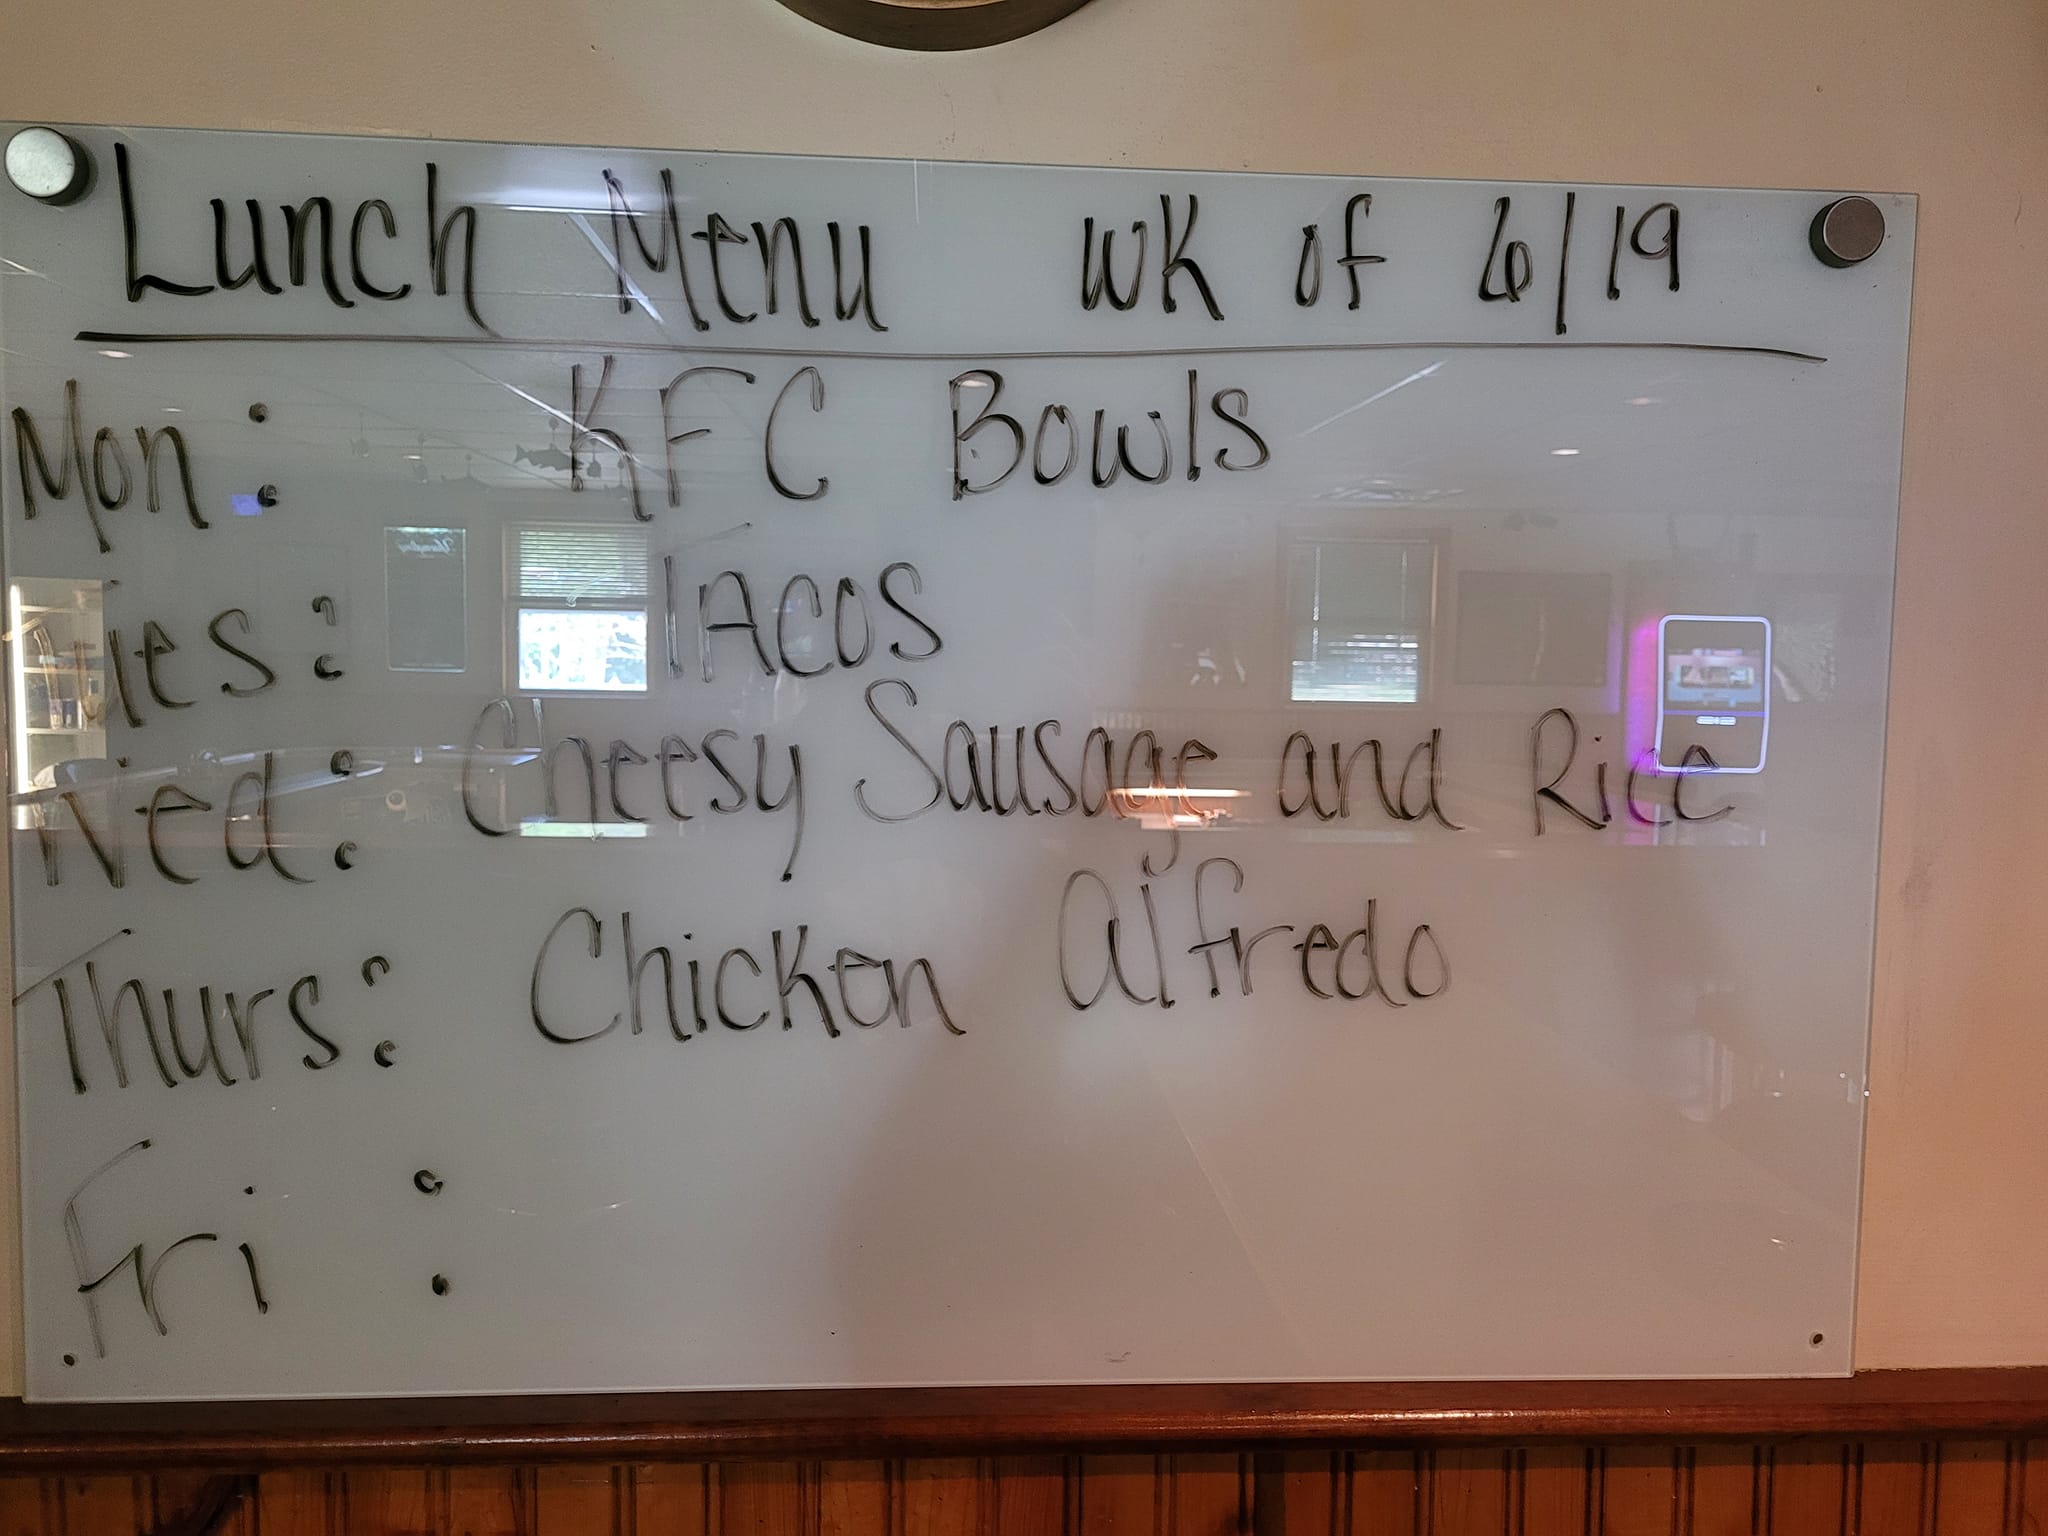 Lunch Menu wk of 6/19
Mon: KFC Bowls
Tues: TACOS
Wed: Cheesy Sausage and Rice
Thurs: Chicken Alfredo
Fri :